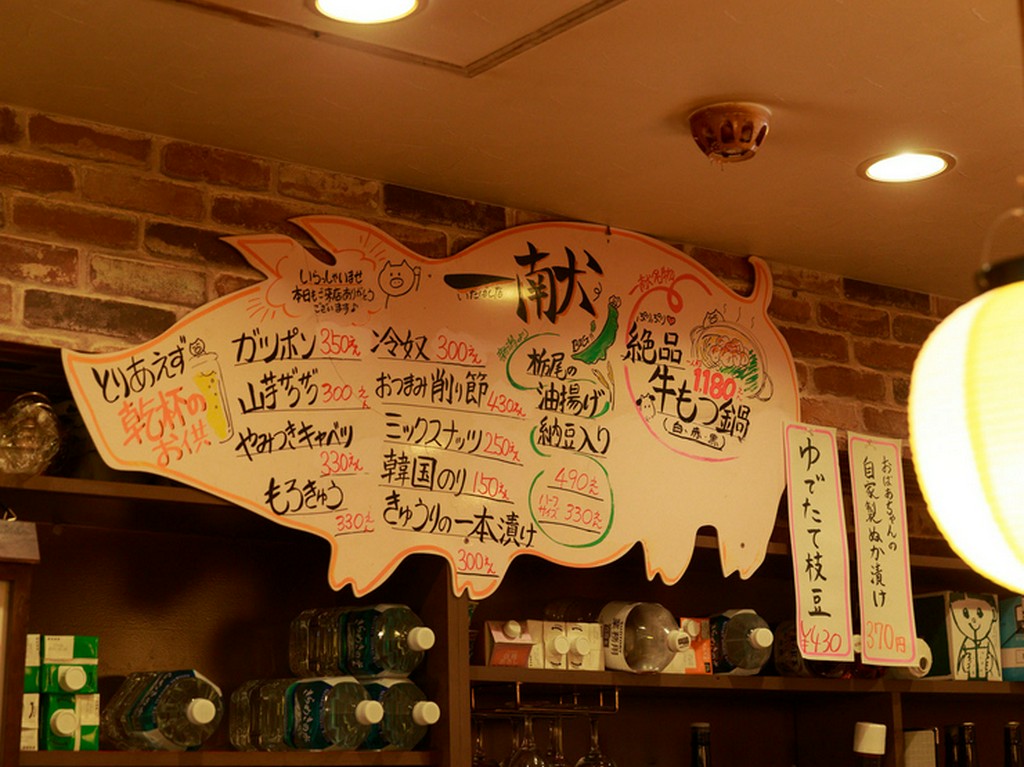 いらっしゃいませ
本日もご来店ありがとう
ございます♪
一献
いたばし店
とりあえず
乾杯の
お供
ガツポン 350えん
山芋ザグザグ 300えん
やみつきキャベツ
330えん
もろきゅう
330えん
冷奴 300えん
おつまみ削り節
430えん
ミックスナッツ 250えん
韓国のり 150えん
きゅうりの一本漬け
300えん
BIG
栃尾の
油揚げ
納豆入り
490えん
ハーフ
サイズ 330えん
ぷりぷり
絶品
牛もつ鍋
1180
白・赤・黒
ゆでたて枝豆
¥430
おばあちゃんの
自家製ぬか漬け
370円